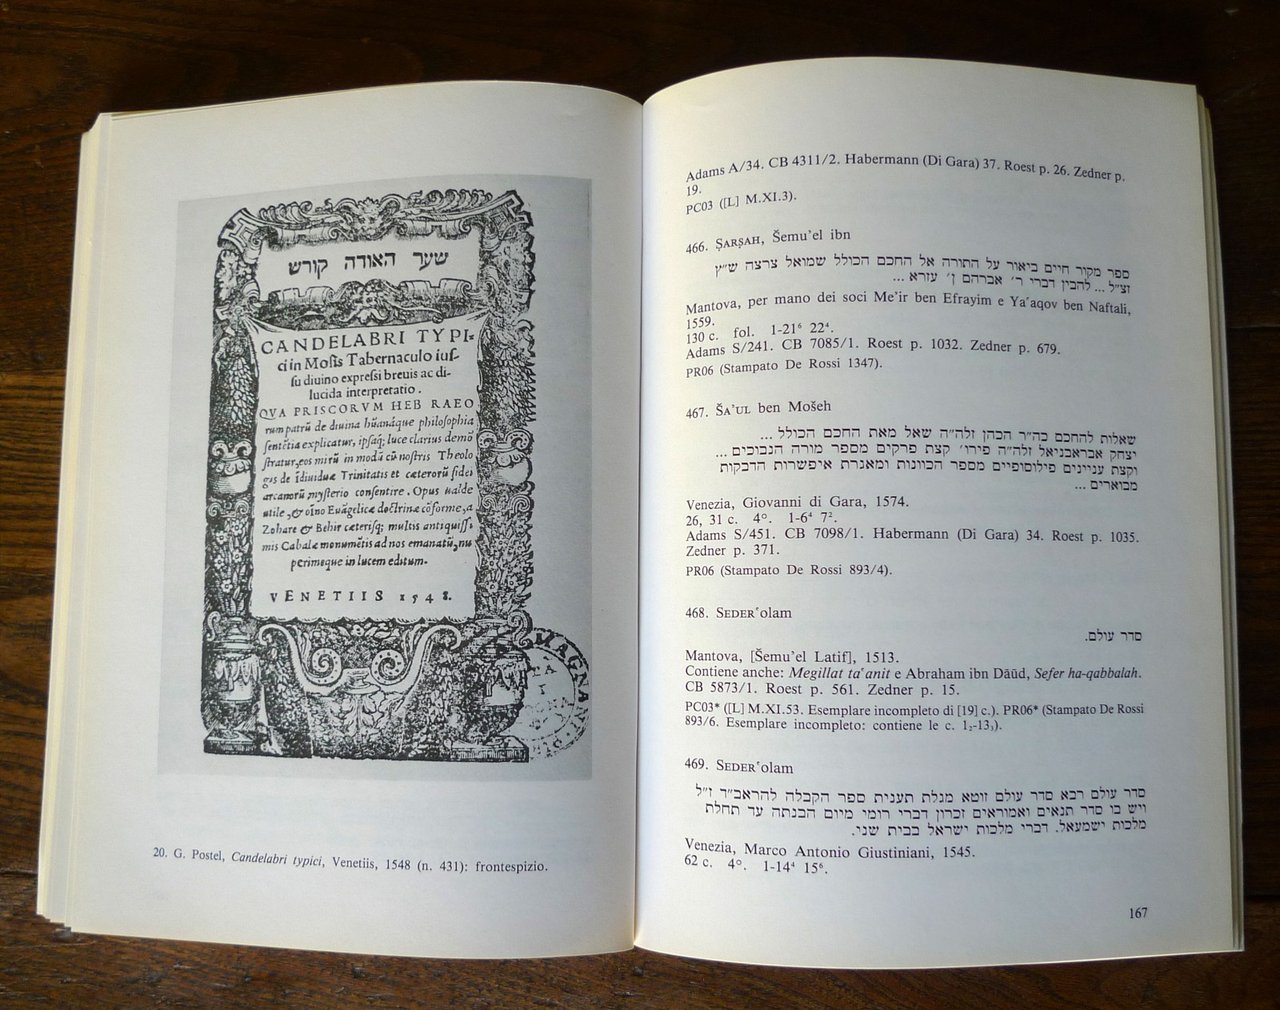 שער האודה קורש
CANDELABRI TYPI-
ci in Mosis Tabernaculo ius-
su diuino expressi breuis ac di-
lucida interpretatio.
QVA PRISCORVM HEB RAEO
rum patrũ de diuina hũanáque philosophia
sentẽtia explicatur, ipsaq; luce clarius demõ
stratur, eos mirũ in modũ cũ nostris Theolo
gis de ĩdiuidua Trinitatis et cæterorũ fidei
arcanorũ mysterio consentire. Opus ualde
utile, & oĩno Euãgelicæ doctrinæ cõforme, a
Zohare & Behir cæterisq; multis antiquiss-
mis Cabalæ monumẽtis ad nos emanatũ, nu
perimeque in lucem editum.
VENETIIS 1548.
MAGNA
20. G. Postel, Candelabri typici, Venetiis, 1548 (n. 431): frontespizio.
Adams A/34. CB 4311/2. Habermann (Di Gara) 37. Roest p. 26. Zedner p.
19.
PC03 ([L] M.XI.3).
466. ṢARṢAH, Šemu'el ibn
ספר מקור חיים ביאור על התורה אל החכם הכולל שמואל צרצה ש״ץ
וצ״ל ... להבין דברי ר׳ אברהם ן׳ עזרא ...
Mantova, per mano dei soci Me'ir ben Efrayim e Ya'aqov ben Naftali,
1559.
130 c. fol. 1-21⁶ 22⁴.
Adams S/241. CB 7085/1. Roest p. 1032. Zedner p. 679.
PR06 (Stampato De Rossi 1347).
467. ŠA'UL ben Mošeh
שאלות להחכם כה״ר הכהן זלה״ה שאל מאת החכם הכולל ...
יצחק אבראבניאל זלה״ה פירו׳ קצת פרקים מספר מורה הנבוכים ...
וקצת עניינים פילוסופיים מספר הכוונות ומאגרת איפשרות הדבקות
מבוארים ...
Venezia, Giovanni di Gara, 1574.
26, 31 c. 4°. 1-6⁴ 7².
Adams S/451. CB 7098/1. Habermann (Di Gara) 34. Roest p. 1035.
Zedner p. 371.
PR06 (Stampato De Rossi 893/4).
468. SEDER ʿolam
סדר עולם.
Mantova, [Šemu'el Latif], 1513.
Contiene anche: Megillat ta'anit e Abraham ibn Dāūd, Sefer ha-qabbalah.
CB 5873/1. Roest p. 561. Zedner p. 15.
PC03* ([L] M.XI.53. Esemplare incompleto di [19] c.). PR06* (Stampato De Rossi
893/6. Esemplare incompleto: contiene le c. 1₂-13₃).
469. SEDER ʿolam
סדר עולם רבא סדר עולם זוטא מגלת תענית ספר הקבלה להראב״ד ז״ל
ויש בו סדר תנאים ואמוראים זכרון דברי רומי מיום הבנתה עד תחלת
מלכות ישמעאל. דברי מלכות ישראל בבית שני.
Venezia, Marco Antonio Giustiniani, 1545.
62 c. 4°. 1-14⁴ 15⁶.
167